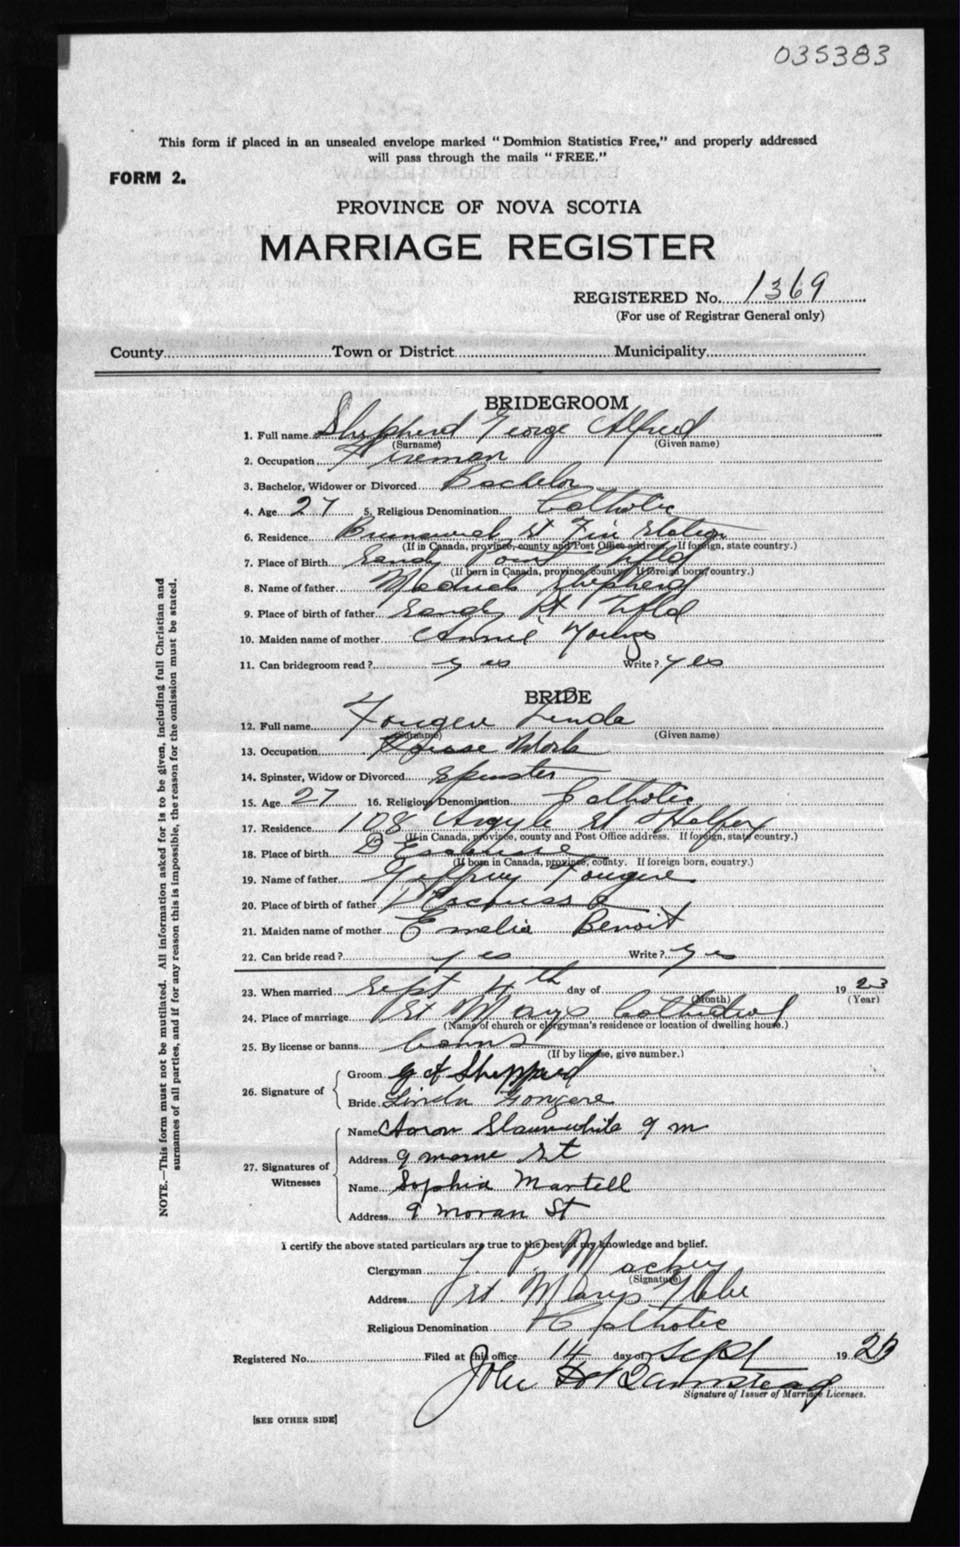 035383
This form if placed in an unsealed envelope marked "Dominion Statistics Free," and properly addressed
will pass through the mails "FREE."
FORM 2.
PROVINCE OF NOVA SCOTIA
MARRIAGE REGISTER
REGISTERED No. 1369
(For use of Registrar General only)
County Town or District Municipality
BRIDEGROOM
1. Full name Shepherd George Alfred
(Surname) (Given name)
2. Occupation Fireman
3. Bachelor, Widower or Divorced Bachelor
4. Age 27 5. Religious Denomination Catholic
6. Residence Brunswick St Fire Station
(If in Canada, province, county and Post Office address. If foreign, state country.)
7. Place of Birth Sandy Nfld
(If born in Canada, province, county. If foreign born, country.)
8. Name of father Shepherd
9. Place of birth of father Sandy Pt Nfld
10. Maiden name of mother Annie Young
11. Can bridegroom read? yes Write? yes
BRIDE
12. Full name Fougere Linda
(Surname) (Given name)
13. Occupation House Work
14. Spinster, Widow or Divorced Spinster
15. Age 27 16. Religious Denomination Catholic
17. Residence 108 Argyle St Halifax
(If in Canada, province, county and Post Office address. If foreign, state country.)
18. Place of birth D'Escousse
(If born in Canada, province, county. If foreign born, country.)
19. Name of father Jeffrey Fougere
20. Place of birth of father
21. Maiden name of mother Emelia Benoit
22. Can bride read? yes Write? yes
23. When married Sept 4th day of 1923
(Month) (Year)
24. Place of marriage St Marys Cathedral
(Name of church or clergyman's residence or location of dwelling house.)
25. By license or banns banns
(If by license, give number.)
26. Signature of Groom G A Sheppard
Bride Linda Fougere
27. Signatures of Witnesses Name Aaron Slaunwhite 9 m
Address 9 St
Name Sophia Martell
Address 9 Moran St
I certify the above stated particulars are true to the best of my knowledge and belief.
Clergyman J. P. Mackey
(Signature)
Address St. Marys Glebe
Religious Denomination Catholic
Registered No. Filed at this office 14 day of Sept 1923
John
Signature of Issuer of Marriage Licenses.
[SEE OTHER SIDE]
NOTE.—This form must not be mutilated. All information asked for is to be given, including full Christian and
surnames of all parties, and if for any reason this is impossible, the reason for the omission must be stated.